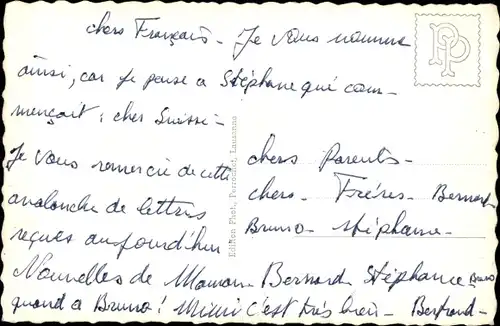 chers Français - Je vous nomme
ainsi, car je pense a Stéphane qui com-
mençait : cher Suisse -
Je vous remercie de cette
avalanche de lettres
reçues aujourd'hui
chers Parents -
chers - Frères - Bernard
Bruno - Stéphane -
Nouvelles de Maman - Bernard Stéphane Bruno
quand a Bruno ! Mimi c'est très bien - Bertrand -
Edition Phot. Perrochet, Lausanne
PP